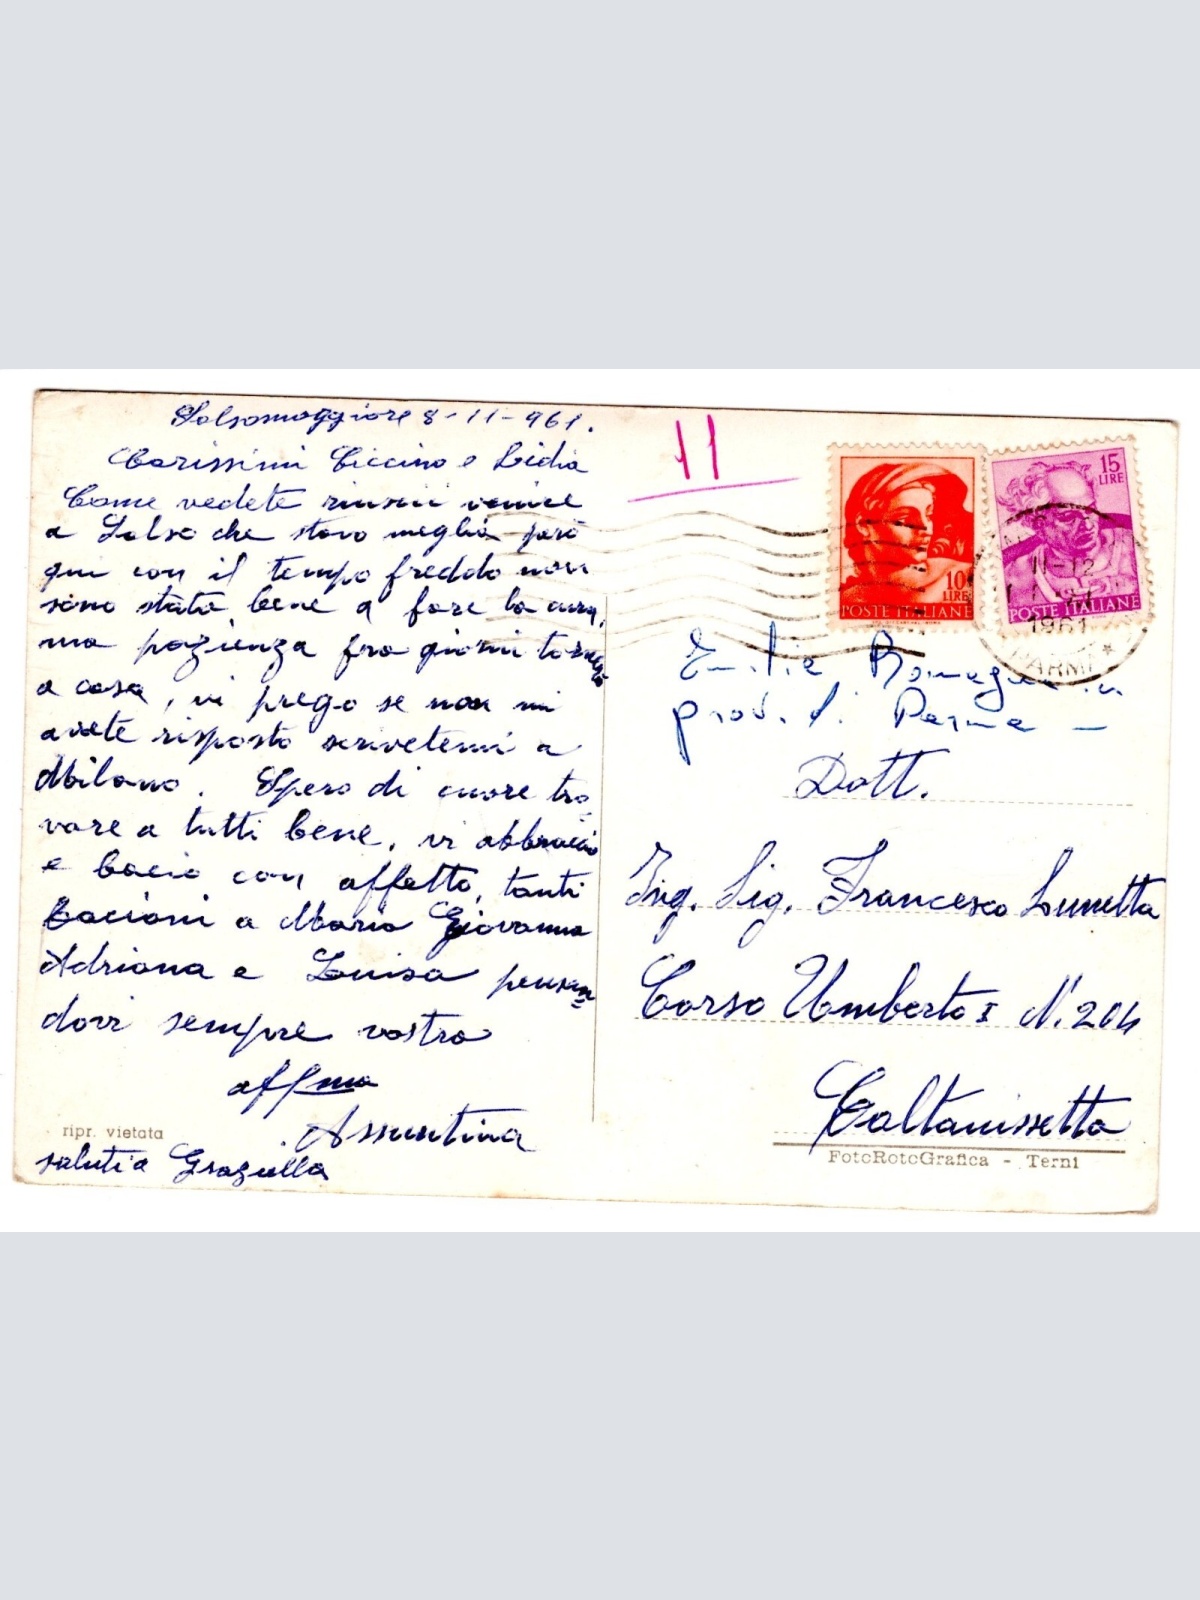 Salsomaggiore 8-11-961.
Carissimi Ciccino e Lidia
Come vedete riuscii venire
a Salso che stavo meglio però
qui con il tempo freddo non
sono stata bene a fare la cura,
ma pazienza fra giorni torno
a casa, vi prego se non mi
avete risposto scrivetemi a
Milano. Spero di cuore tro-
vare a tutti bene, vi abbraccio
e bacio con affetto, tanti
bacioni a Maria Giovanna
Adriana e Luisa pensan
dovi sempre vostra
affma
Assuntina
ripr. vietata
saluti a Graziella
11
10
LIRE
POSTE ITALIANE
15
LIRE
POSTE ITALIANE
11-12
1961
PARMA
Emilia Romagna
prov. di Parma -
Dott.
Ing. Sig. Francesco Lunetta
Corso Umberto I N. 204
Caltanissetta
FotoRotoGrafica - Terni